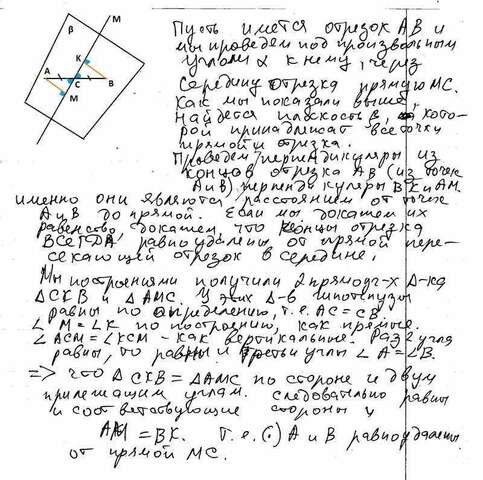 M
β
K
A
C
B
M
Пусть имеется отрезок AB и
мы проведем под произвольным
углом α к нему, через
середину отрезка прямую MC.
Как мы показали выше,
найдется плоскость β, кото-
рой принадлежат все точки
прямой и отрезка.
Проведем перпендикуляры из
концов отрезка AB (из точек
A и B) перпендикуляры BK и AM.
именно они являются расстоянием от точек
A и B до прямой. Если мы докажем их
равенство, докажем, что концы отрезка
ВСЕГДА равноудалены от прямой пере-
секающей отрезок в середине.
Мы построениями получили 2 прямоуг-х Δ-ка
ΔCKB и ΔAMC. У этих Δ-в гипотенузы
равны по определению, т.е. AC = CB.
∠M = ∠K по построению, как прямые.
∠ACM = ∠KCM - как вертикальные. Раз 2 угла
равны, то равны и третьи углы ∠A = ∠B.
=> что ΔCKB = ΔAMC по стороне и двум
прилежащим углам. Следовательно равны
и соответствующие стороны
AM = BK. Т.е. (·) A и B равноудалены
от прямой MC.